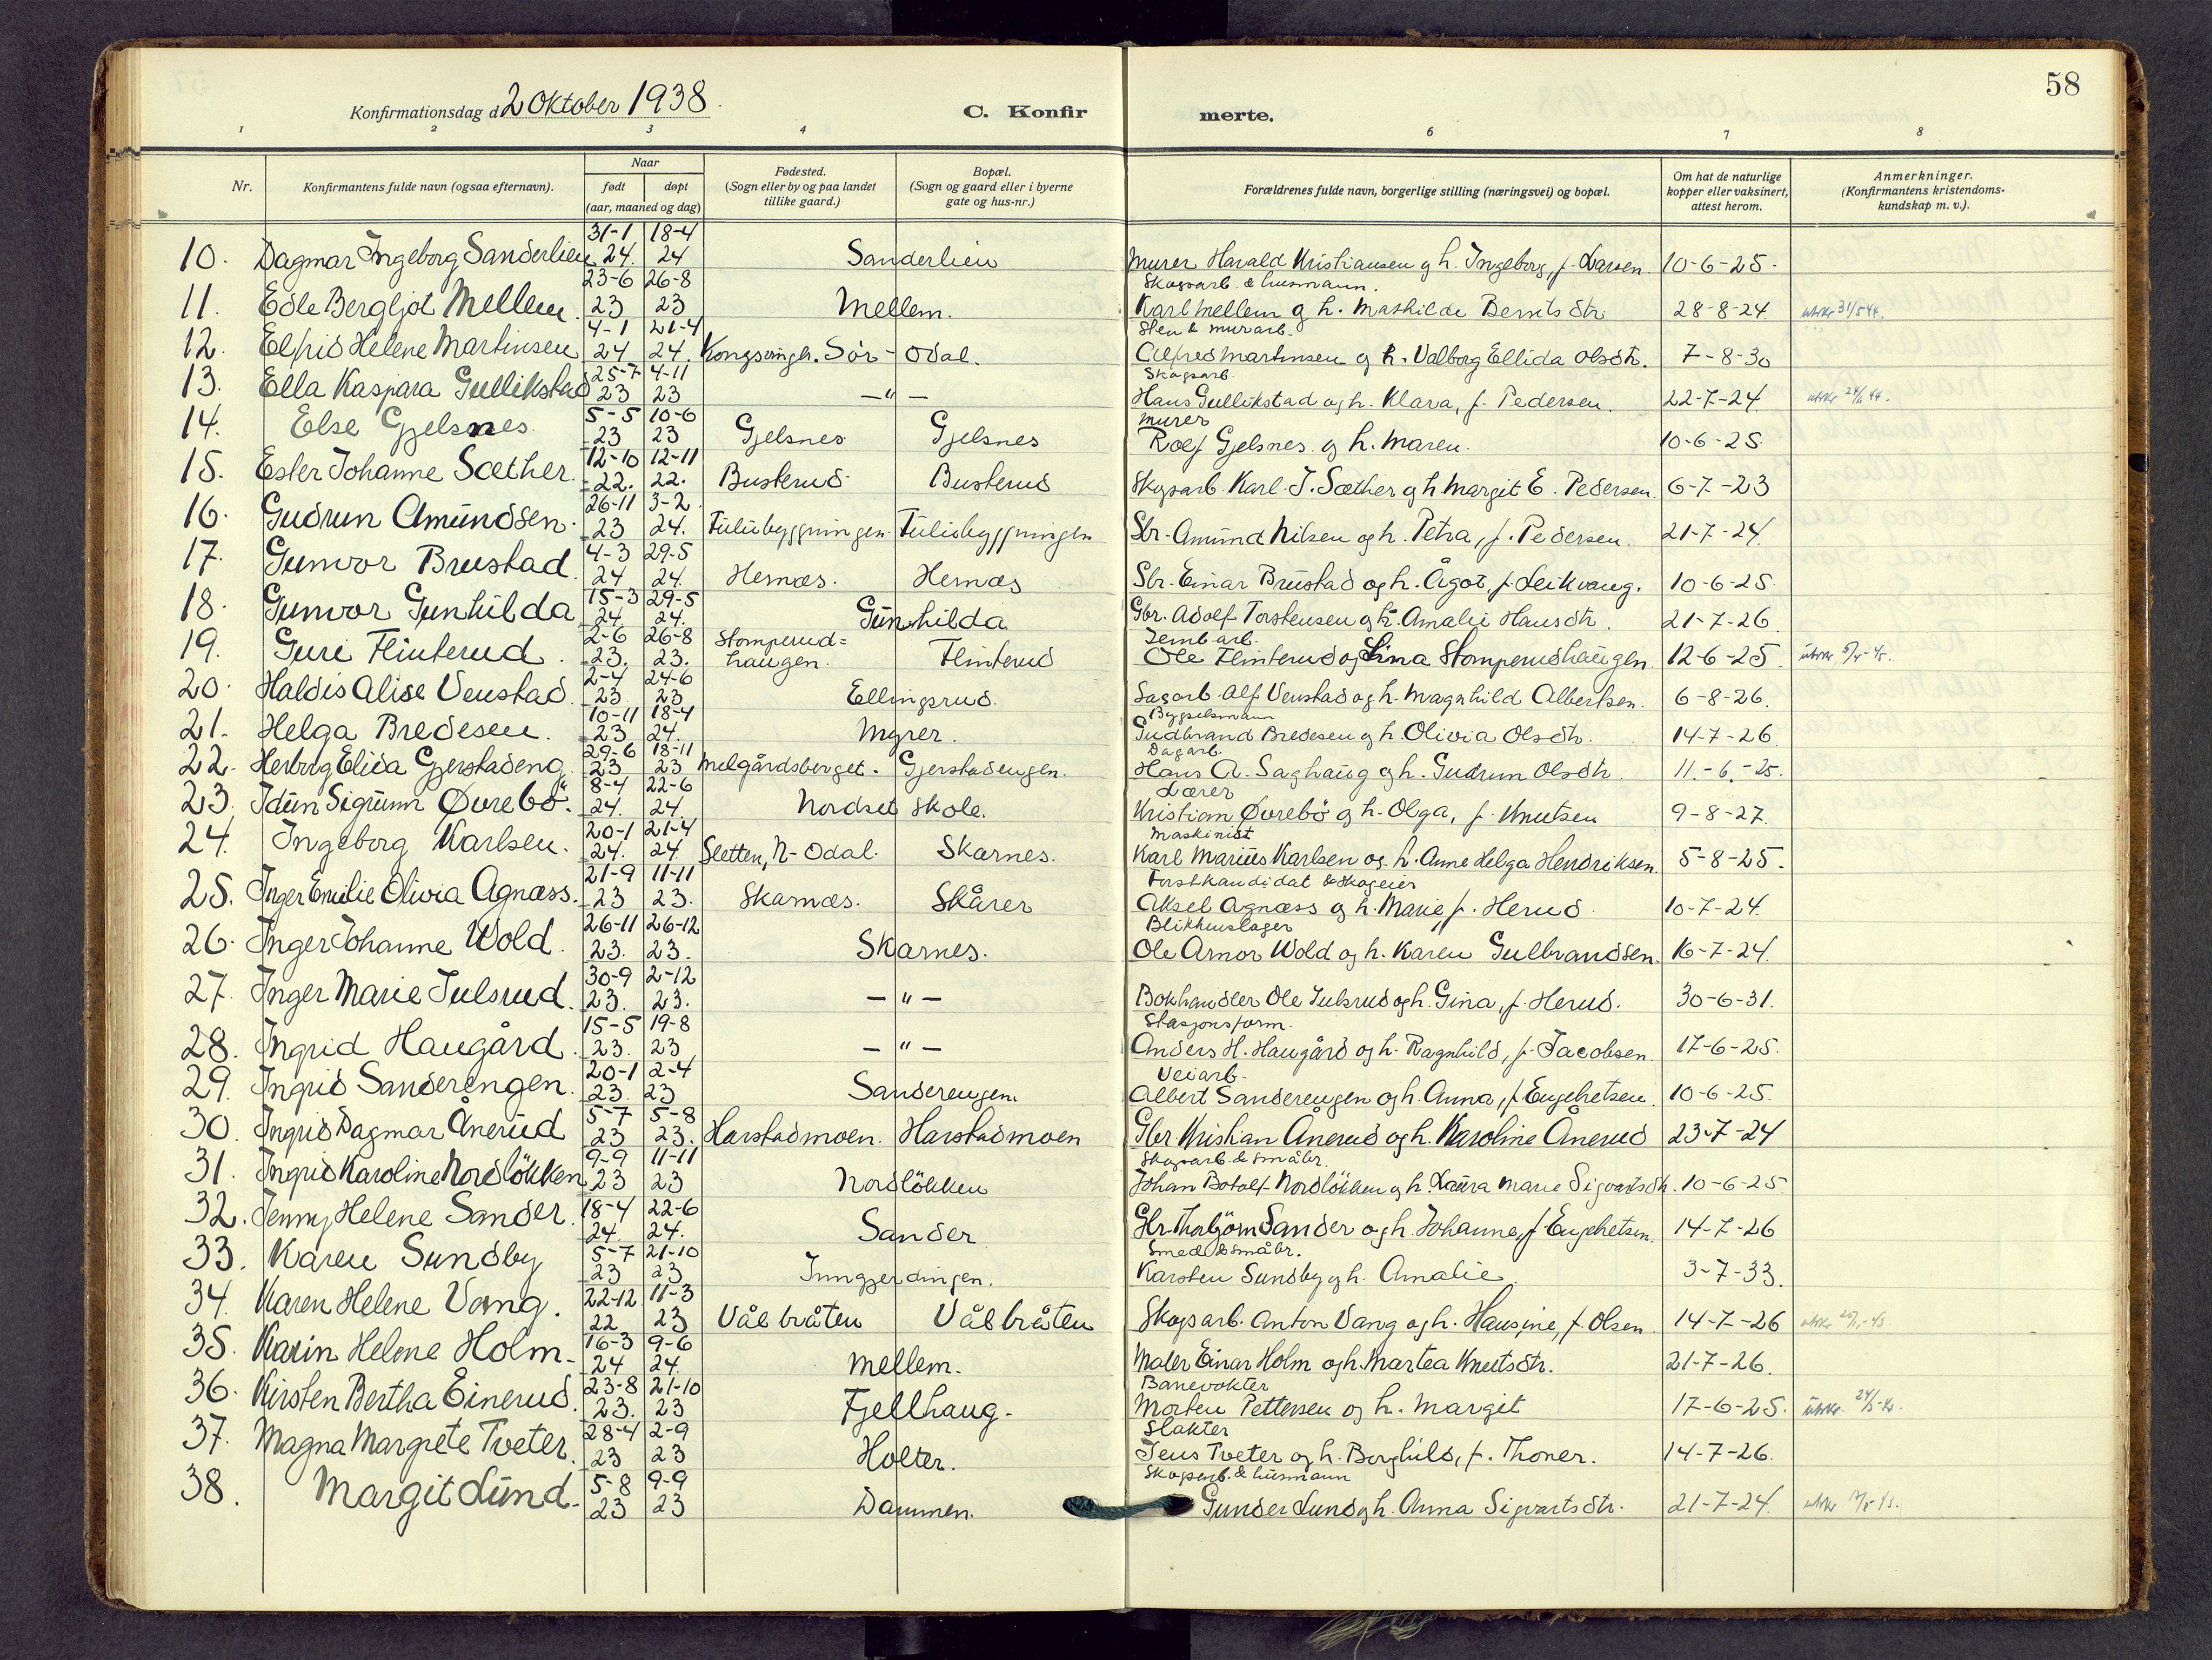 58
Konfirmationsdag d 2 Oktober 1938.
C. Konfir merte.
1 2 3 4 6 7 8
Nr.
Konfirmantens fulde navn (ogsaa efternavn).
Naar
født døpt
(aar, maaned og dag)
Fødested.
(Sogn eller by og paa landet
tillike gaard.)
Bopæl.
(Sogn og gaard eller i byerne
gate og hus-nr.)
Forældrenes fulde navn, borgerlige stilling (næringsvei) og bopæl.
Om hat de naturlige
kopper eller vaksinert,
attest herom.
Anmerkninger.
(Konfirmantens kristendoms-
kundskap m. v.).
31-1 18-4
10. Dagmar Ingeborg Sanderlien 24. 24 Sanderlien Murer Harald Kristiansen og h. Ingeborg, f. Larsen 10-6-25.
23-6 26-8 Skogsarb. & husmann.
11. Edle Bergljot Mellem. 23 23 Mellem. Karl Mellem og h. Mathilde Berntsdtr. 28-8-24. utskr. 31/5 44.
4-1 21-4 Sten & murarb.
12. Elfrid Helene Martinsen 24 24. Kongsvingh. Sör-Odal. Alfred Martinsen og h. Valborg Ellida Olsdtr. 7-8-30
25-7 4-11 Skogsarb.
13. Ella Kaspara Gullikstad 23 23 —"— Hans Gullikstad og h. Klara, f. Pedersen. 22-7-24.
5-5 10-6 Murer
14. Else Gjelsnes. 23 23 Gjelsnes Gjelsnes Rolf Gjelsnes og h. Maren. 10-6-25.
12-10 12-11
15. Ester Johanne Sæther. 22. 22. Busterud Busterud Skogsarb. Karl J. Sæther og h. Margit E. Pedersen. 6-7-23
26-11 3-2
16. Gudrun Amundsen. 23 24. Tulubyggningen. Tulubyggningen Sbr. Amund Nilsen og h. Petra, f. Pedersen. 21-7-24.
4-3 29-5
17. Gunvor Brustad. 24 24. Hernæs. Hernæs Sbr. Einar Brustad og h. Ågot, f. Leikvang. 10-6-25.
15-3 29-5
18. Gunvor Gunhilda 24. 24. Gunhilda Gbr. Adolf Torstensen og h. Amalie Hansdtr. 21-7-26.
2-6 26-8 Stomperud= Jernb.arb.
19. Guri Flinterud. 23. 23. haugen. Flinterud Ole Flinterud og Lina Stomperudhaugen. 12-6-25.
2-4 24-6
20. Haldis Alise Venstad. 23 23 Ellingsrud. Sagarb. Alf Venstad og h. Magnhild Albertsen. 6-8-26.
10-11 18-4 Bygselsmann
21. Helga Bredesen. 23 24. Myrer. Gudbrand Bredesen og h. Olivia Olsdtr. 14-7-26.
29-6 18-11 Dagarb.
22. Herborg Elida Gjerstadeng. 23 23 Melgårdsberget. Gjerstadengen. Hans A. Saghaug og h. Gudrun Olsdtr. 11.-6.-25.
8-4 22-6 Lærer
23. Idun Sigrunn Øvrebö. 24. 24. Nordset skole. Kristian Øvrebö og h. Olga, f. Knutsen 9-8-27.
20-1 21-4 Maskinist
24. Ingeborg Karlsen. 24. 24. Sletten, N-Odal. Skarnes. Karl Marius Karlsen og h. Anne Helga Hendriksen. 5-8-25.
21-9 11-11 Forstkandidat & skogeier
25. Inger Emilie Olivia Agnæss. 23 23. Skarnæs. Skårer Aksel Agnæss og h. Marie, f. Herud. 10-7-24.
26-11 26-12 Blikkenslager
26. Inger Johanne Wold. 23. 23. Skarnes. Ole Arnor Wold og h. Karen Gulbrandsen. 16-7-24.
30-9 2-12
27. Inger Marie Julsrud. 23. 23. —"— Bokhandler Ole Julsrud og h. Gina, f. Herud. 30-6-31.
15-5 19-8 Stasjonsform.
28. Ingrid Haugård. 23. 23 —"— Anders H. Haugård og h. Ragnhild, f. Jacobsen. 17-6-25.
20-1 2-4 Veiarb.
29. Ingrid Sanderengen. 23. 23 Sanderengen. Albert Sanderengen og h. Anna, f. Engebretsen. 10-6-25.
5-7 5-8
30. Ingrid Dagmar Ånerud 23 23. Harstadmoen. Harstadmoen Gbr. Kristian Ånerud og h. Karoline Ånerud 23-7-24
9-9 11-11 Skogsarb. & småbr.
31. Ingrid Karoline Nordlökken 23 23 Nordlökken Johan Botolf Nordlökken og h. Laura Marie Sigvartsdtr. 10-6-25.
18-4 22-6
32. Jenny Helene Sander. 24. 24. Sander Gbr. Thorbjörn Sander og h. Johanne, f. Engebretsen. 14-7-26
5-7 21-10 Smed & småbr.
33. Karen Sundby 23 23 Inngjerdingen. Karsten Sundby og h. Amalie. 3-7-33.
22-12 11-3
34. Karen Helene Vang. 22 23 Vålbråten Vålbråten Skogsarb. Anton Vang og h. Hansine, f. Olsen. 14-7-26
16-3 9-6
35. Karin Helene Holm. 24 24. Mellem. Maler Einar Holm og h. Martea Knutsdtr. 21-7-26.
23-8 21-10 Banevokter
36. Kirsten Bertha Einerud. 23. 23 Fjellhaug. Morten Pettersen og h. Margit 17-6-25.
28-4 2-9 Slakter
37. Magna Margrete Tveter. 23 23 Holter. Jens Tveter og h. Borghild, f. Thoner. 14-7-26.
5-8 9-9 Skogsarb. & husmann
38. Margit Lund. 23 23 Dammen. Gunder Lund og h. Anna Sigvartsdtr. 21-7-24.